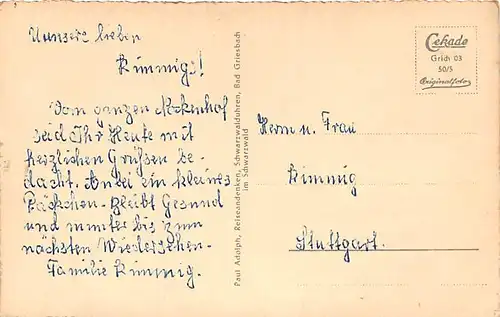 Uunsere lieben
Kimmigs!
Vom ganzen Rockenhof
seid Ihr Heute mit
herzlichen Grüßen be-
dacht. Anbei ein kleines
Päckchen - bleibt Gesund
und munter bis zum
nächsten Wiedersehen-
Familie Kimmig.
Paul Adolph, Reiseandenken, Schwarzwalduhren, Bad Griesbach
im Schwarzwald
Cekade
Grich 03
50/5
Originalfoto
Herrn u. Frau
Kimmig
Stuttgart.